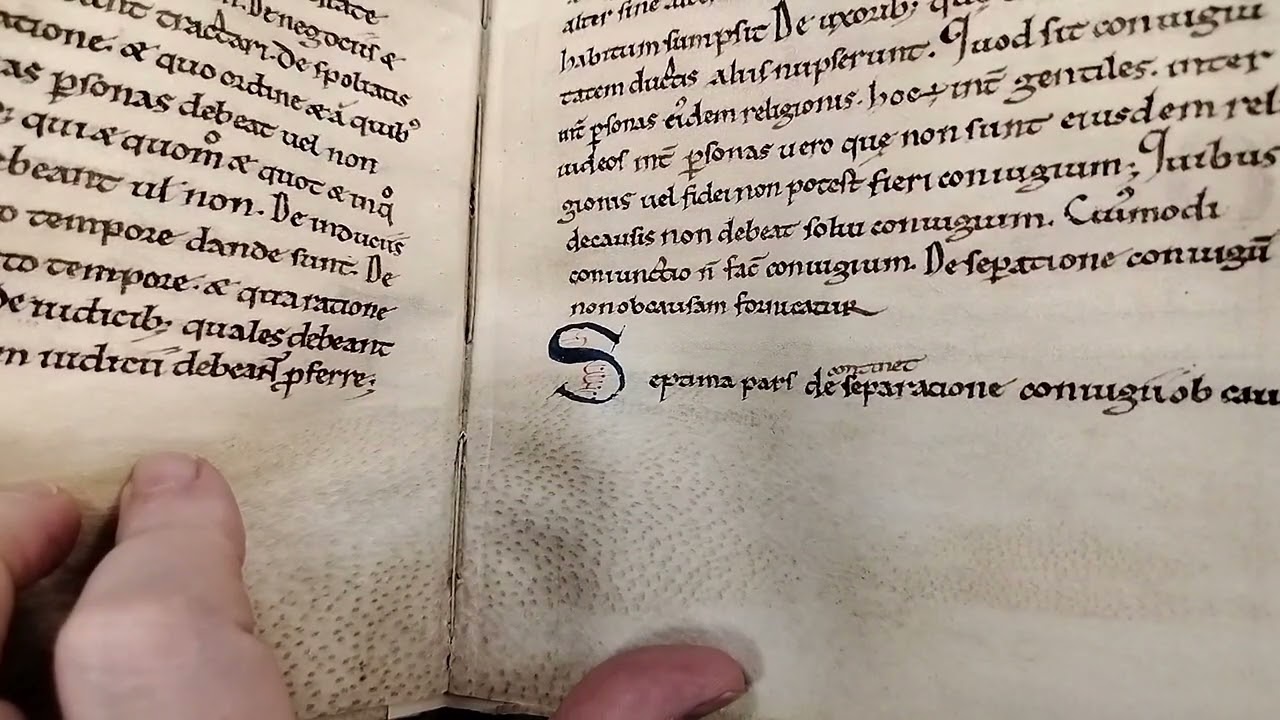 tractari. De spoliatis
atione. & quo ordine & a quib᾽
as ꝑsonas debeat vel non
quiæ quom̊ & quot & in q̊
ebeant ul̓ non. De induciis
o tempore dande sunt. De
to tempore. & qua ratione
De iudicib; quales debeant
m iudicii debeant ꝓferre;
alter sine
habitum sumpsit De uxorib;
tatem ductis aliis nupserunt. Quod sit coniugiū
int̄ ꝑsonas ei᾽dem religionis. hoc ÷ int̄ gentiles. inter
iudeos int̄ ꝑsonas uero quę non sunt eiusdem reli
gionis uel fidei non potest fieri coniugium; Quibus
de causis non debeat solui coniugium. Cui᾽modi
coniunctio n̄ fac̄ coniugium. De seꝑatione coniugii
non ob causam fornicationis
continet
Septima pars de separacione coniugii ob cau